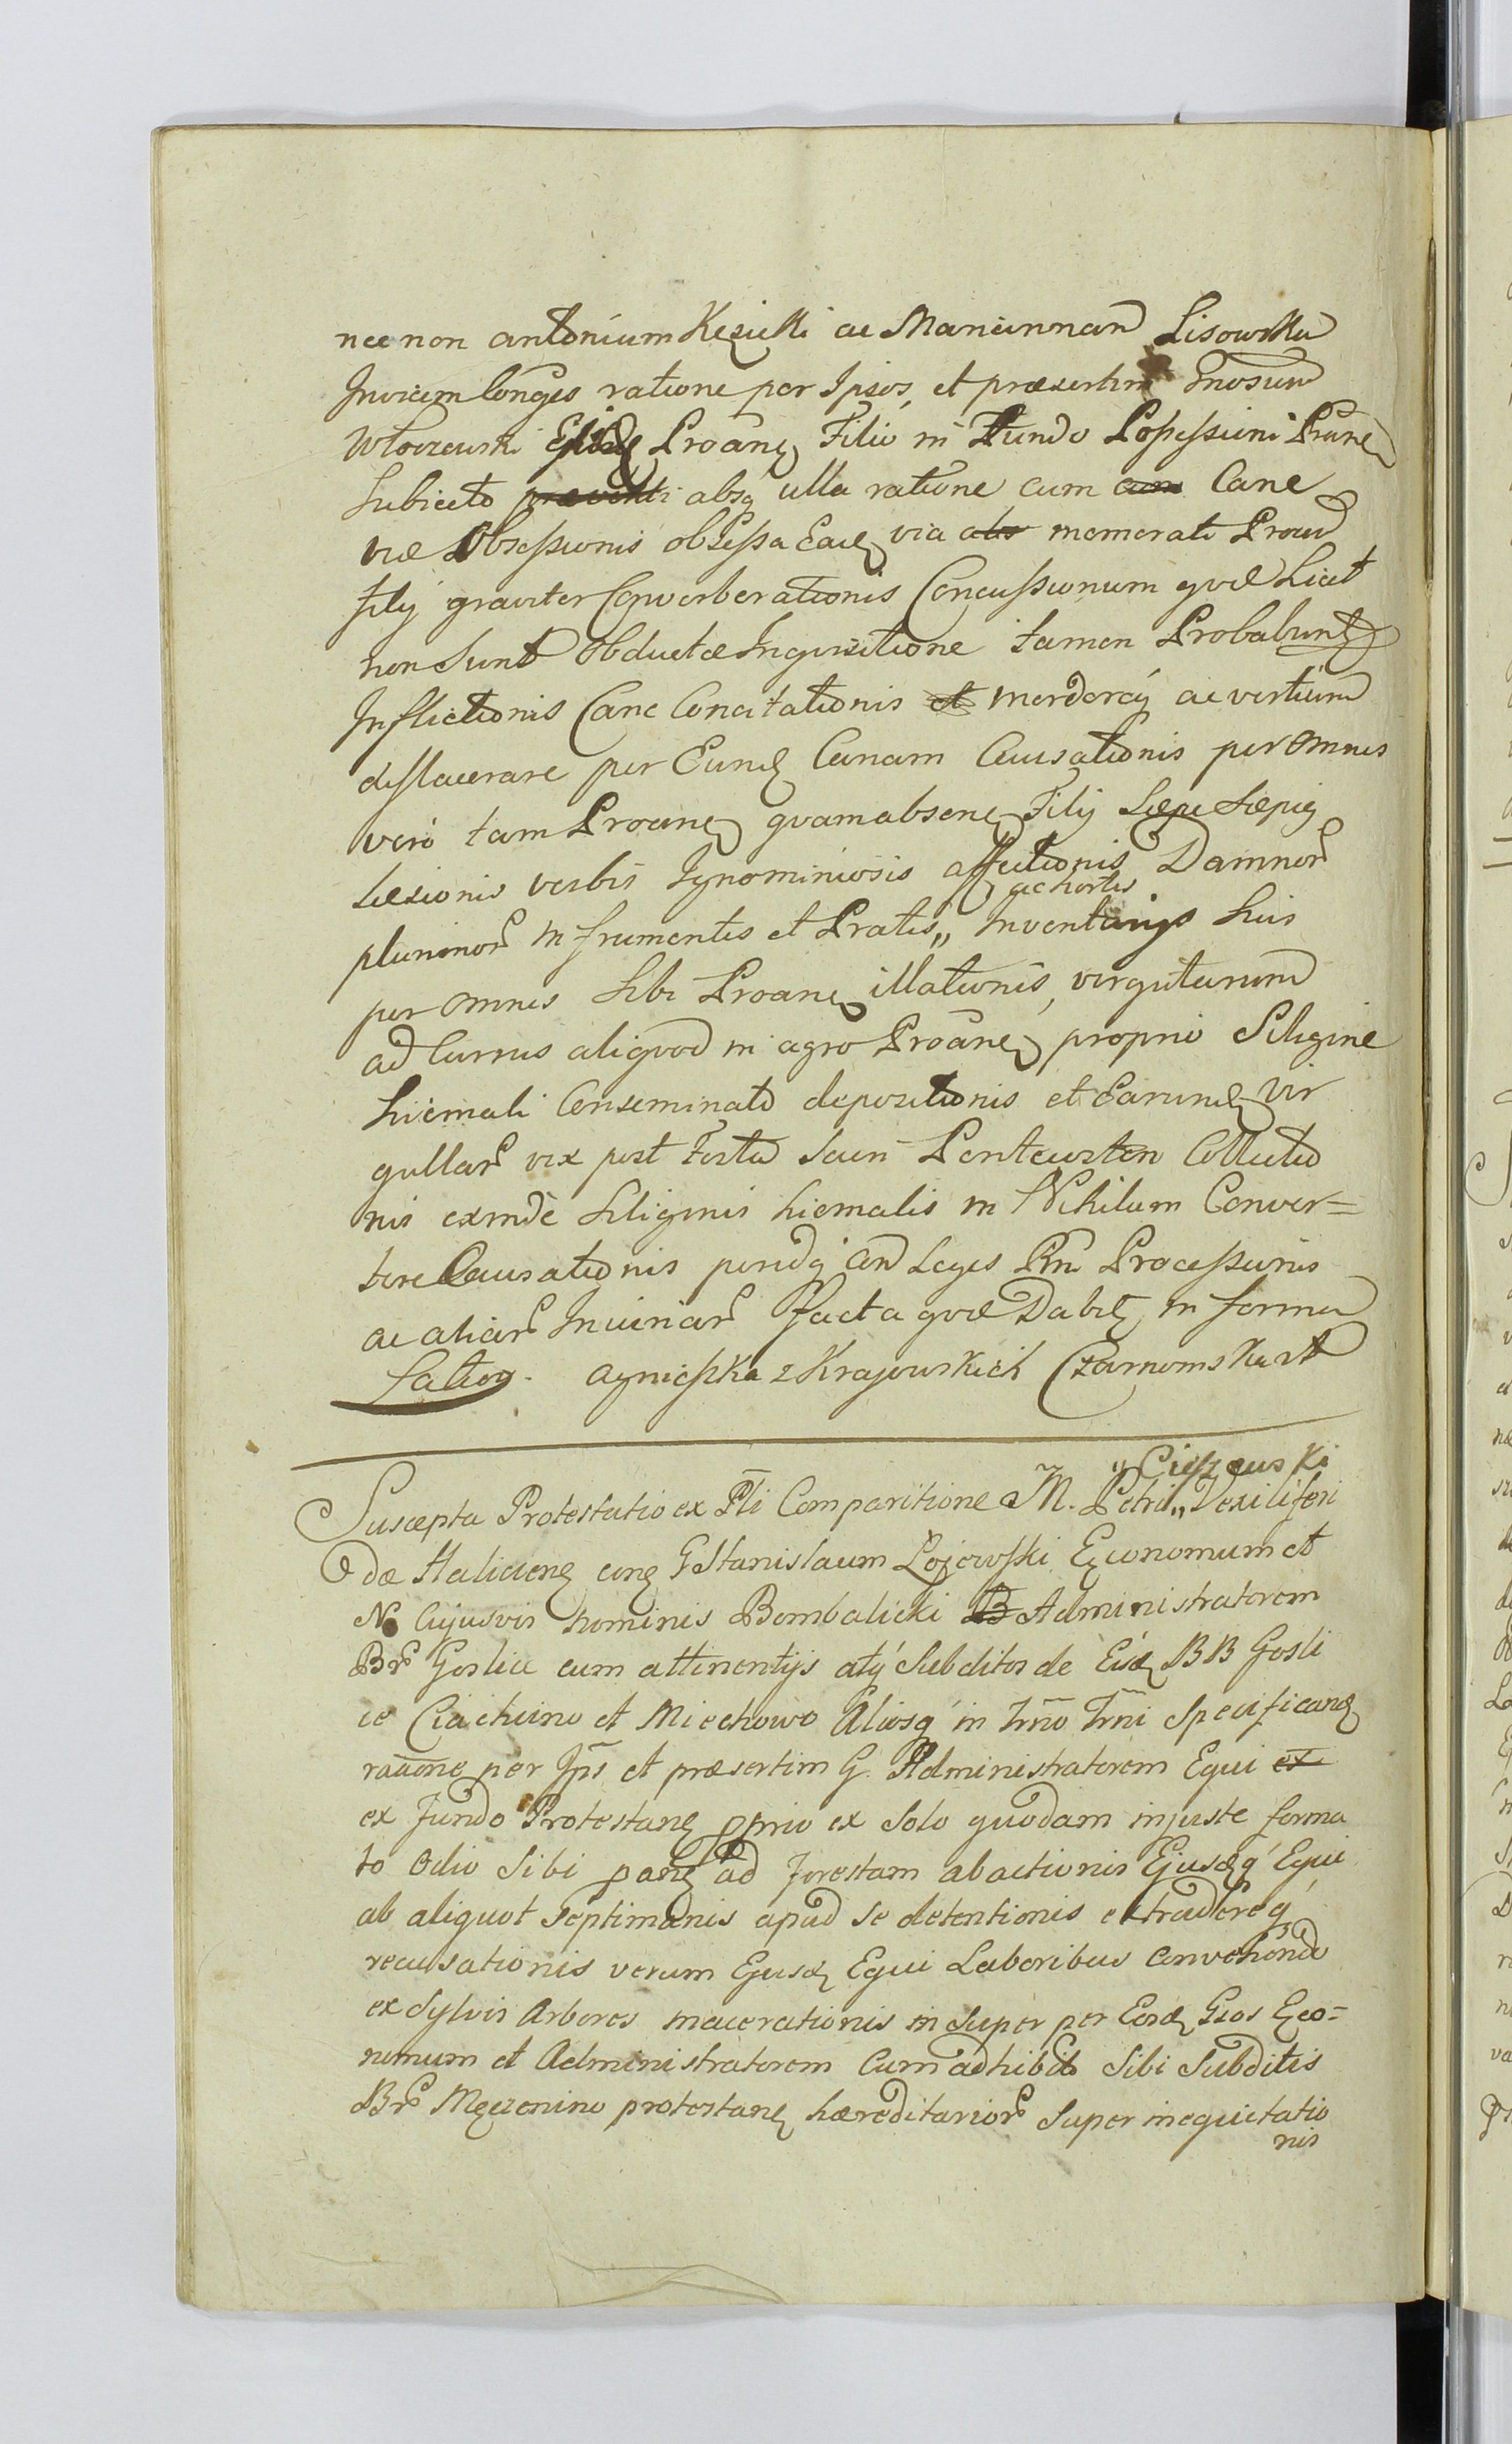 nec non antonium Kęzicki ac Mariannam Lisowska
Invicem Conges ratione per Ipsos, et præsertim Gnosum
Wtoczewski Proãne Filio in Fundo Possessioni Prãne
Subiecto præventi absq ulla ratione cum cum Cane
viæ Obsessionis obsessa Eade via memorati Proan
filij graviter Converberationis Concussionum qvæ Licet
non Sunt Obductæ Inqvisitione tamen Probabunt
Inflictionis Cane Concitationis et morderey ac vestium
dislacerare per Eund Canam Causationis per Omnes
vero tam Proane qvam absene Filij Sæpe Sæpiq
Læsionis verbis Ignominiosis affectionis Damnor
plurimor in frumentis et Pratis „ ac hortis Inventarijs Suis
per Omnes Sibi Proane illationis, virgultarum
ad Currus aliqvod in agro Proãne proprio Siligine
hiemali Conseminato depozitionis et Earund Vir
gullar vix post Festa Sacri Pentecosten Collectio
nis exinde Siliginis hiemalis in Nihilum Conver=
tere Causationis pendq Leges Processuris
ac aliar Iniuriar facta qvæ Dabit in forma
Latior. Agnieszka z Krajewskich Czarnomska
Suscepta Protestatio ex Pti Comparitione M. Petri „ Cieszewski Vexiliferi
dæ Haliciens cong G Stanislaum Łojewski Economum et
N Cujusvis nominis Bombalicki B Administratorem
Br Goslice cum attinentijs atq Subditos de Eisd BB Gosli
ce Ciachcino et Miechowo Aliosq in Trno Trni Specificand
raãone per Ips et præsertim G. Administratorem Equi ex
ex Fundo Protestane pprio ex Solo quodam injuste forma
to Odio Sibi pane ad Forestam abactionis Ejusdq Equi
ab aliquot Septimanis apud Se detentionis extradereq
recusationis verum Ejusd Equi Laboribus convehendo
ex Sylvis Arbores macerationis in Super per Eosd Gsos Eco=
nomum et Administratorem Cum adhibit Sibi Subditis
Br Męczenino protestane hæreditarior Super inequitatio
nis